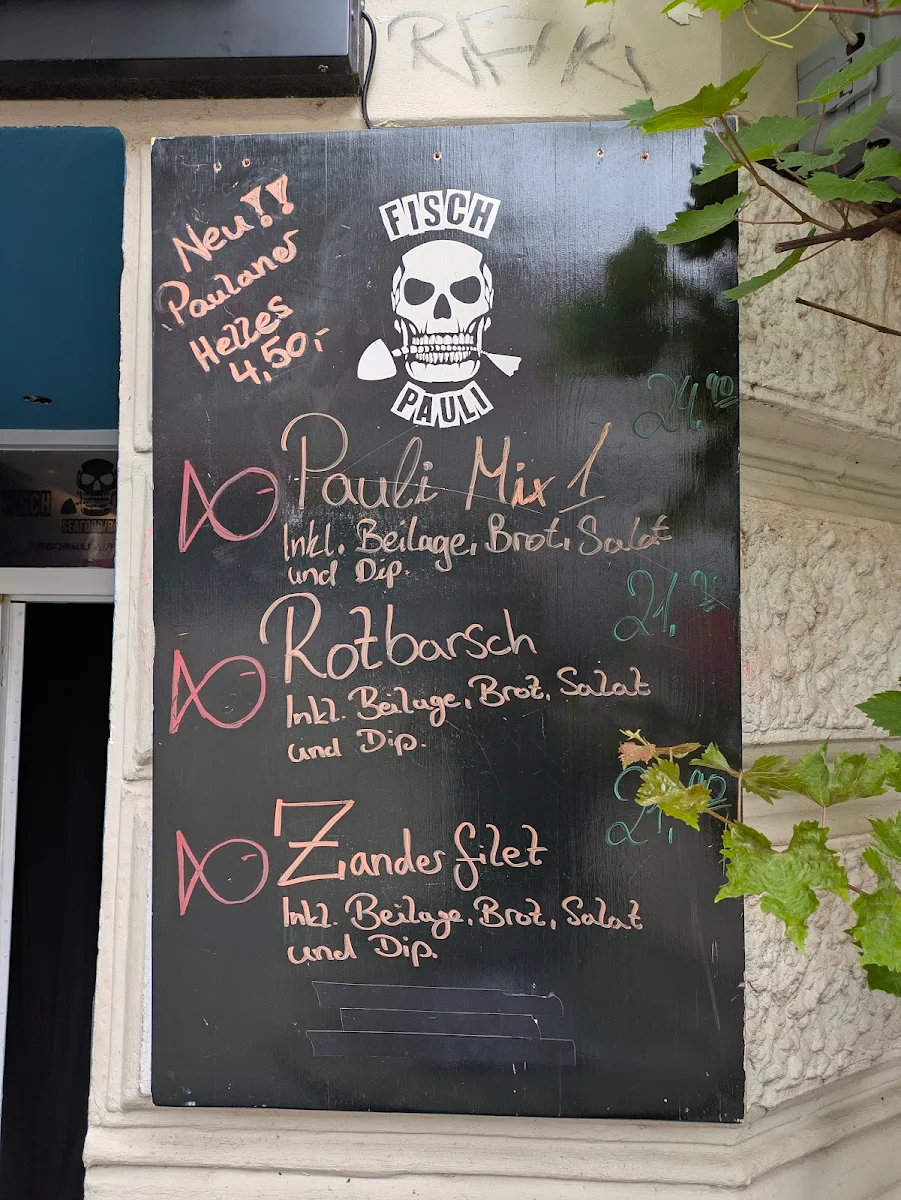 Neu!!
Paulaner
Helles
4,50,-
FISCH
PAULI
24,90
Pauli Mix 1
Inkl. Beilage, Brot, Salat
und Dip.
21,90
Rotbarsch
Inkl. Beilage, Brot, Salat
und Dip.
Zanderfilet
Inkl. Beilage, Brot, Salat
und Dip.
FISCH
SEAFOOD/B
/FISCHPAULI